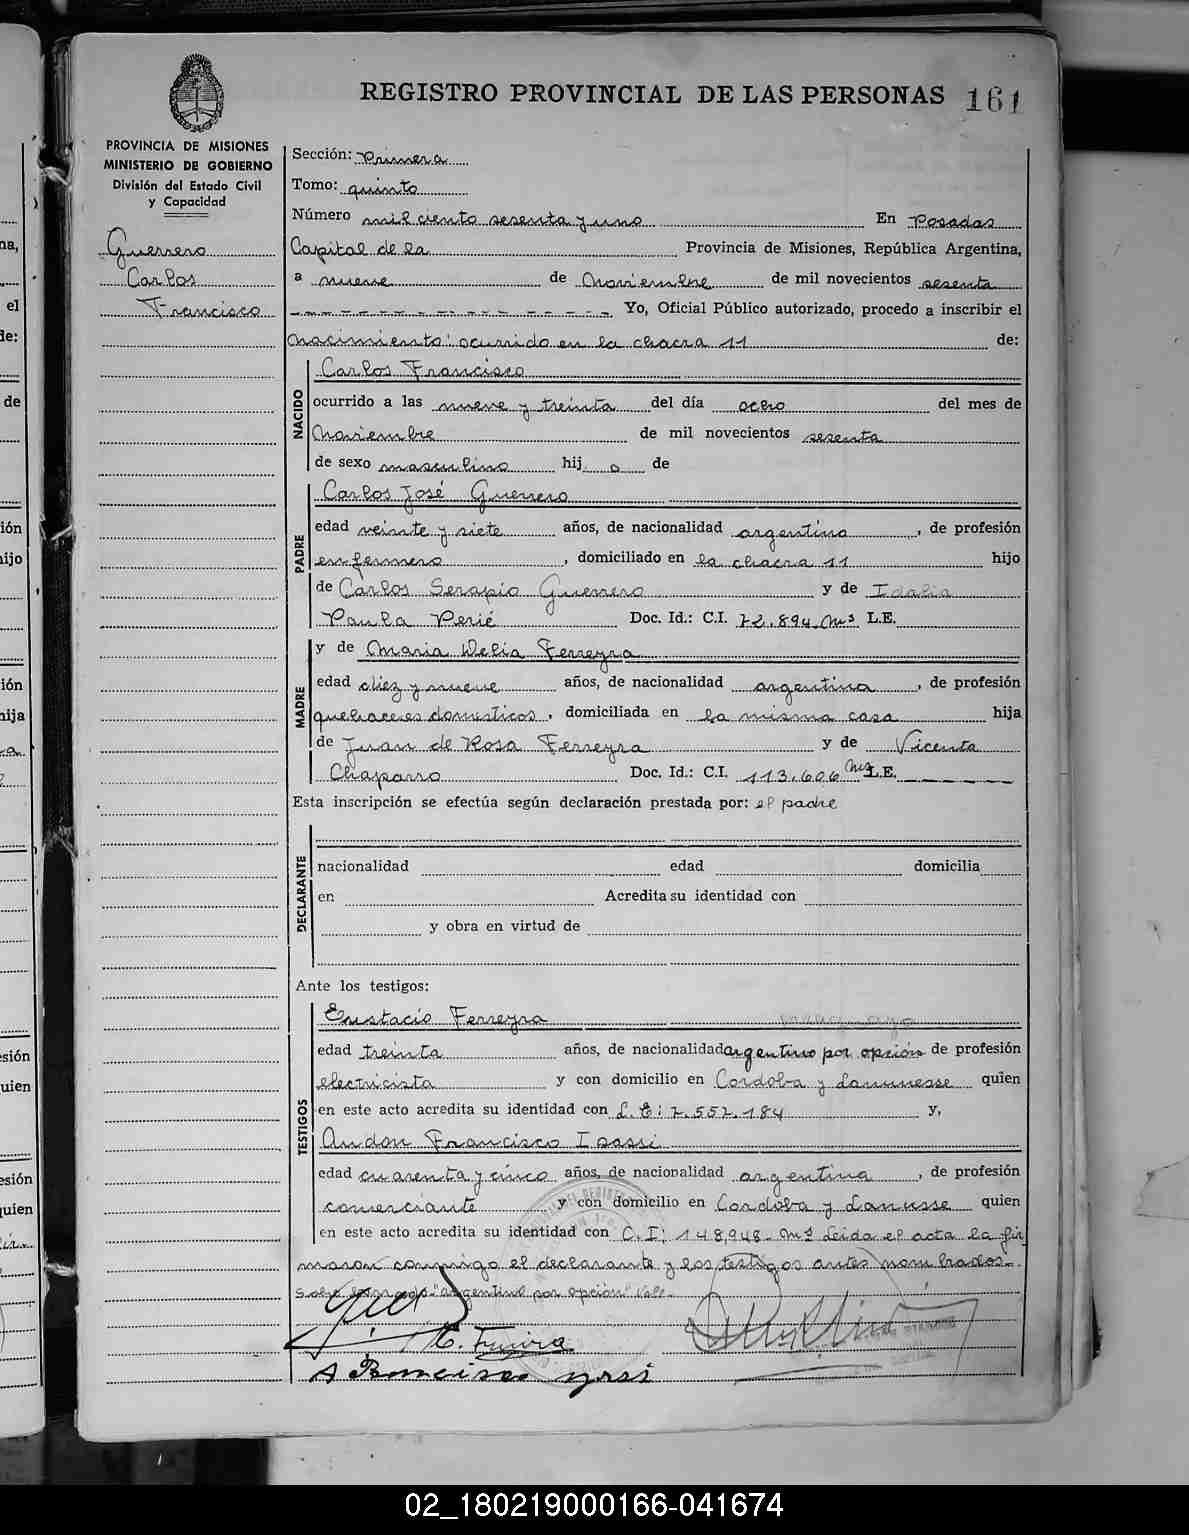 REGISTRO PROVINCIAL DE LAS PERSONAS 161
PROVINCIA DE MISIONES
MINISTERIO DE GOBIERNO
División del Estado Civil
y Capacidad
Guerrero
Carlos
Francisco
Sección: Primera
Tomo: quinto
Número mil ciento sesenta y uno En Posadas
Capital de la Provincia de Misiones, República Argentina,
a nueve de Noviembre de mil novecientos sesenta
Yo, Oficial Público autorizado, procedo a inscribir el
Nacimiento: ocurrido en la chacra 11 de:
NACIDO
Carlos Francisco
ocurrido a las nueve y treinta del día ocho del mes de
Noviembre de mil novecientos sesenta
de sexo masculino hij o de
PADRE
Carlos José Guerrero
edad veinte y siete años, de nacionalidad argentino, de profesión
enfermero, domiciliado en la chacra 11 hijo
de Carlos Serapio Guerrero y de Idalia
Paula Perié Doc. Id.: C.I. 72.894 Mns L.E.
MADRE
y de Maria Delia Ferreyra
edad diez y nueve años, de nacionalidad argentina, de profesión
quehaceres domesticos, domiciliada en la misma casa hija
de Juan de Rosa Ferreyra y de Vicenta
Chaparro Doc. Id.: C.I. 113.606 Mns L.E.
Esta inscripción se efectúa según declaración prestada por: el padre
DECLARANTE
nacionalidad edad domicilia
en Acredita su identidad con
y obra en virtud de
Ante los testigos:
TESTIGOS
Eustacio Ferreyra
edad treinta años, de nacionalidad argentino por opción de profesión
electricista y con domicilio en Cordoba y Lanunesse quien
en este acto acredita su identidad con L.E: 7.552.184 y,
Audon Francisco Isassi
edad cuarenta y cinco años, de nacionalidad argentina, de profesión
comerciante y con domicilio en Cordoba y Lanusse quien
en este acto acredita su identidad con C.I: 148,948- Mns Leida el acta la fir
maron conmigo el declarante y los testigos antes nombrados.
Sobre borrado "argentino por opción" Vale.
A Francisco
02_180219000166-041674